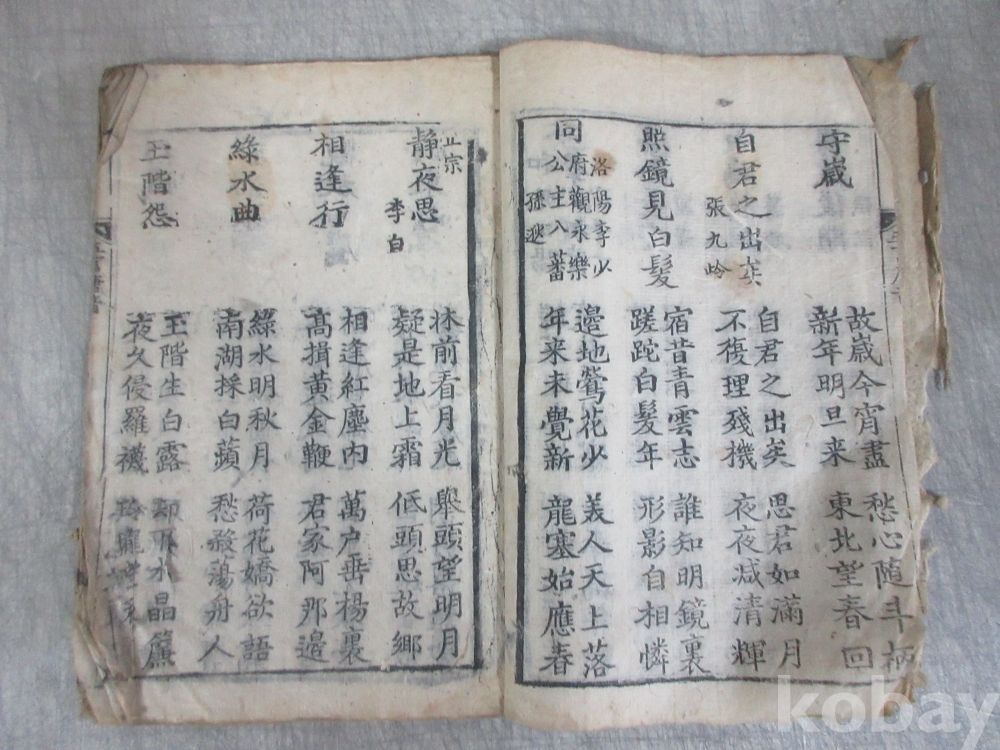 守歲
故歲今宵盡
新年明旦来
愁心随斗柄
東北望春回
自君之出矣
張九岭
自君之出矣
不復理殘機
思君如滿月
夜夜减清輝
照鏡見白髮
宿昔青雲志
蹉跎白髮年
誰知明鏡裏
形影自相憐
同
洛陽李少
府觀永樂
公主入蕃
孫逖
邉地鶯花少
年来未覺新
美人天上落
龍塞始應春
正宗
靜夜思
李白
牀前看月光
疑是地上霜
擧頭望明月
低頭思故鄉
相逢行
相逢紅塵内
髙揖黃金鞭
萬户垂楊裏
君家阿那邉
綠水曲
綠水明秋月
南湖採白蘋
荷花嬌欲語
愁殺蕩舟人
玉階怨
玉階生白露
夜久侵羅襪
却下水晶簾
玲瓏
kobay